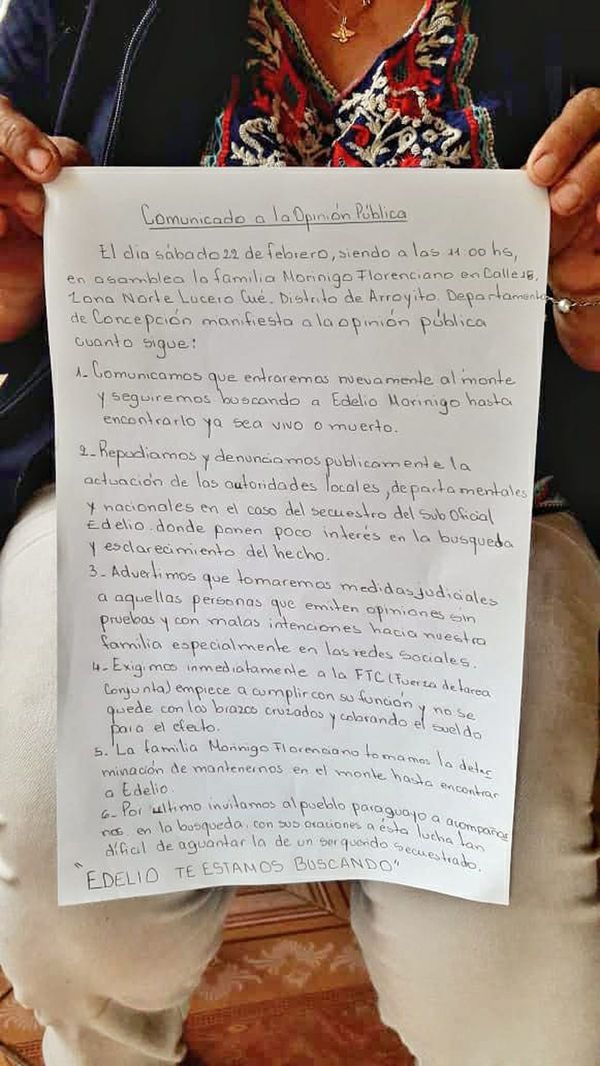 Comunicado a la Opinión Pública
El día sábado 22 de febrero, siendo a las 11:00 hs,
en asamblea la familia Morinigo Florenciano en Calle 18,
Zona Norte Lucero Cué. Distrito de Arroyito. Departamento
de Concepción manifiesta a la opinión pública
cuanto sigue:
1- Comunicamos que entraremos nuevamente al monte
y seguiremos buscando a Edelio Morinigo hasta
encontrarlo ya sea vivo o muerto.
2- Repudiamos y denunciamos publicamente la
actuación de las autoridades locales, departamentales
y nacionales en el caso del secuestro del Sub Oficial
Edelio. donde ponen poco interés en la busqueda
y esclarecimiento del hecho.
3- Advertimos que tomaremos medidas judiciales
a aquellas personas que emiten opiniones sin
pruebas y con malas intenciones hacia nuestra
familia especialmente en las redes sociales.
4- Exigimos inmediatamente a la FTC (Fuerza de tarea
Conjunta) empiece a cumplir con su función y no se
quede con los brazos cruzados y cobrando el sueldo
para el efecto.
5. La familia Morinigo Florenciano tomamos la deter
minación de mantenernos en el monte hasta encontrar
a Edelio.
6- Por ultimo invitamos al pueblo paraguayo a acompañar
nos. en la busqueda. con sus oraciones a ésta lucha tan
díficil de aguantar la de un ser querido secuestrado.
"EDELIO TE ESTAMOS BUSCANDO"